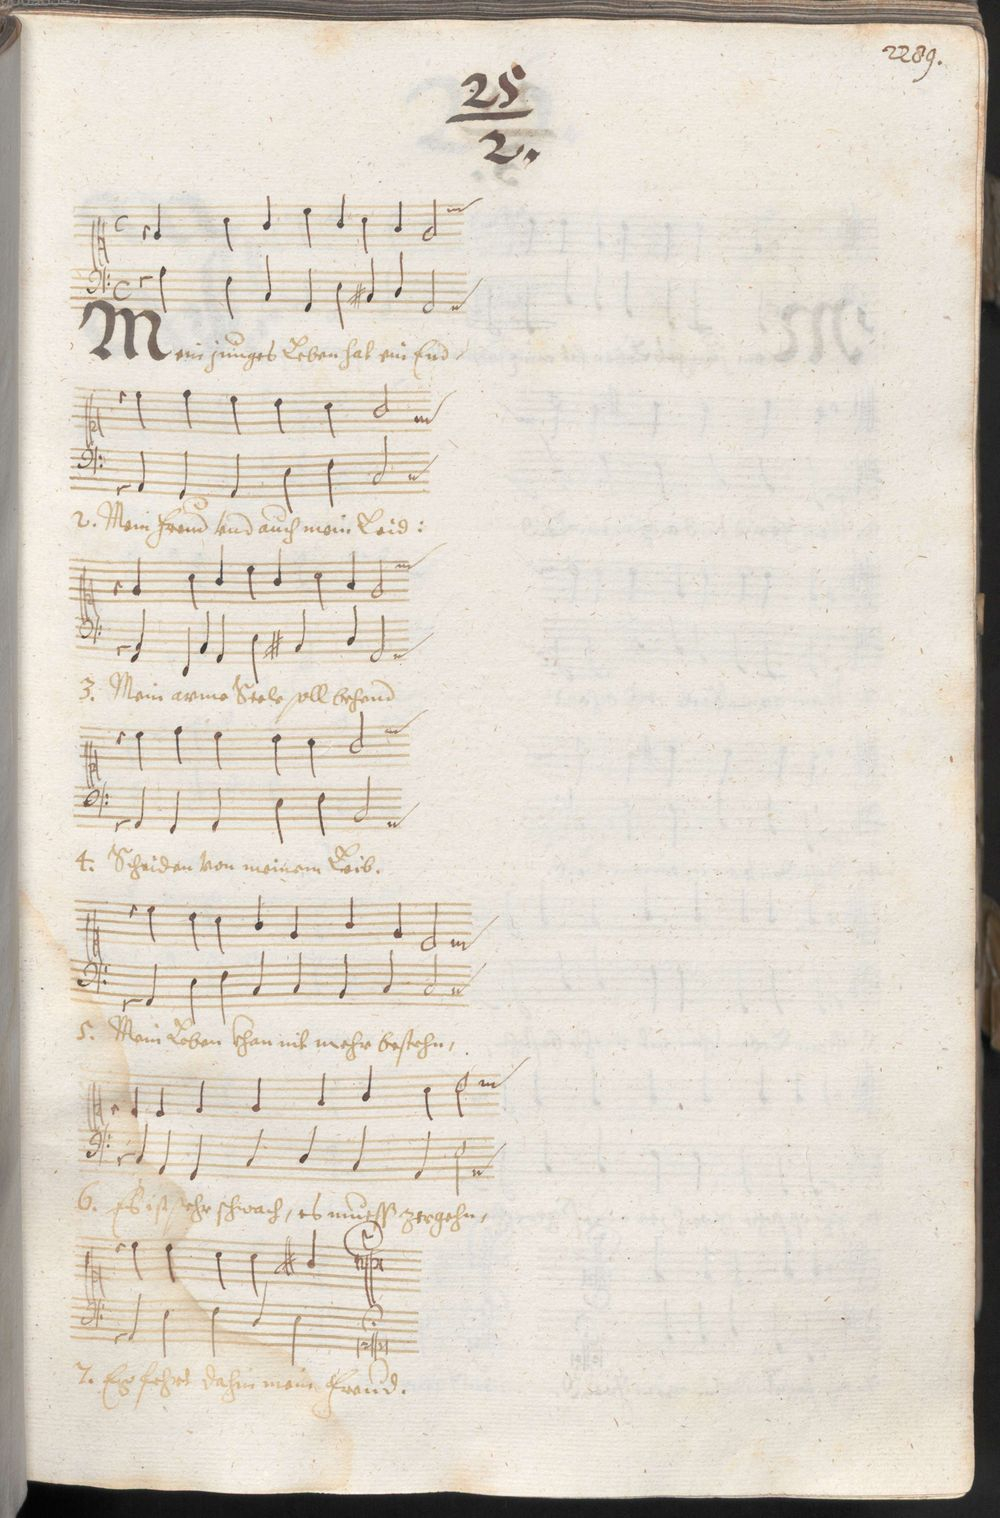 2289.
25
2.
Mein junges Leben hat ein End
2. Mein Freud vnd auch mein Leid :
3. Mein arme Seele soll behend
4. Scheiden von meinem Leib.
5. Mein Leben khan nit mehr bestehn,
6. Es ist sehr schwach, es muess zergehn,
7. fehrt dahin mein Freud.